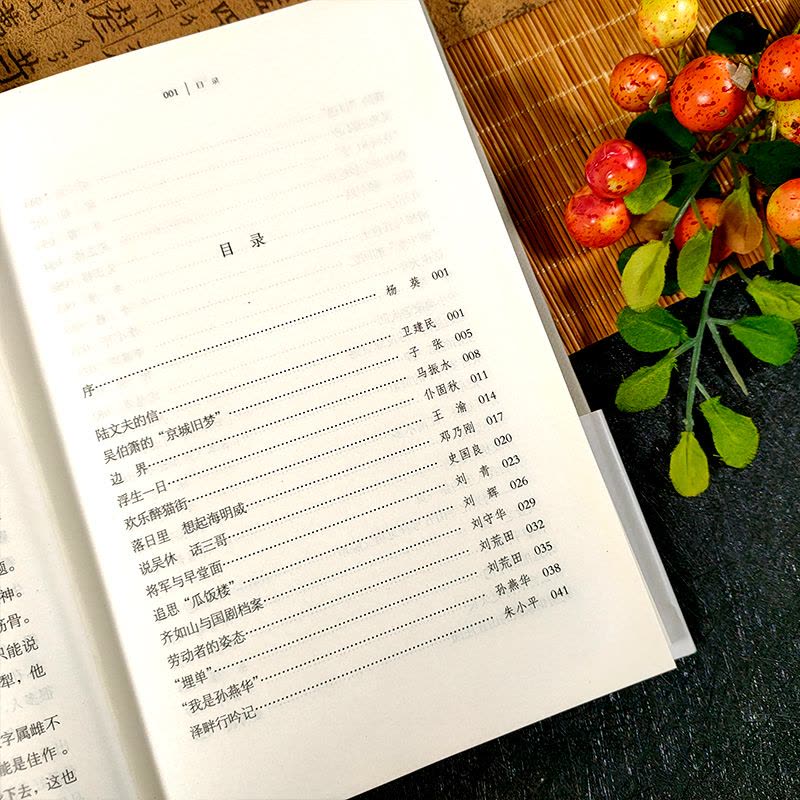 001 | 目录
目 录
序 杨 葵 001
陆文夫的信 卫建民 001
吴伯萧的“京城旧梦” 子 张 005
边 界 马振水 008
浮生一日 仆固秋 011
欢乐醉猫街 王 渝 014
落日里 想起海明威 邓乃刚 017
说吴休 话三哥 史国良 020
将军与早堂面 刘 青 023
追思“瓜饭楼” 刘 辉 026
齐如山与国剧档案 刘守华 029
劳动者的姿态 刘荒田 032
“埋单” 刘荒田 035
“我是孙燕华” 孙燕华 038
泽畔行吟记 朱小平 041
题。
神。
筋骨。
只能说
犁，他
字属雌不
能是佳作。
下去，这也